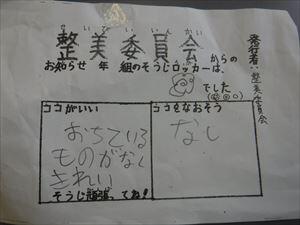 せいびいいんかい
整美委員会からの
お知らせ 年 組のそうじロッカーは、
でした
発行者:整美委員会
ココがいい
おちている
ものがなく
きれい
そうじ頑張ってね!
ココをなおそう
なし